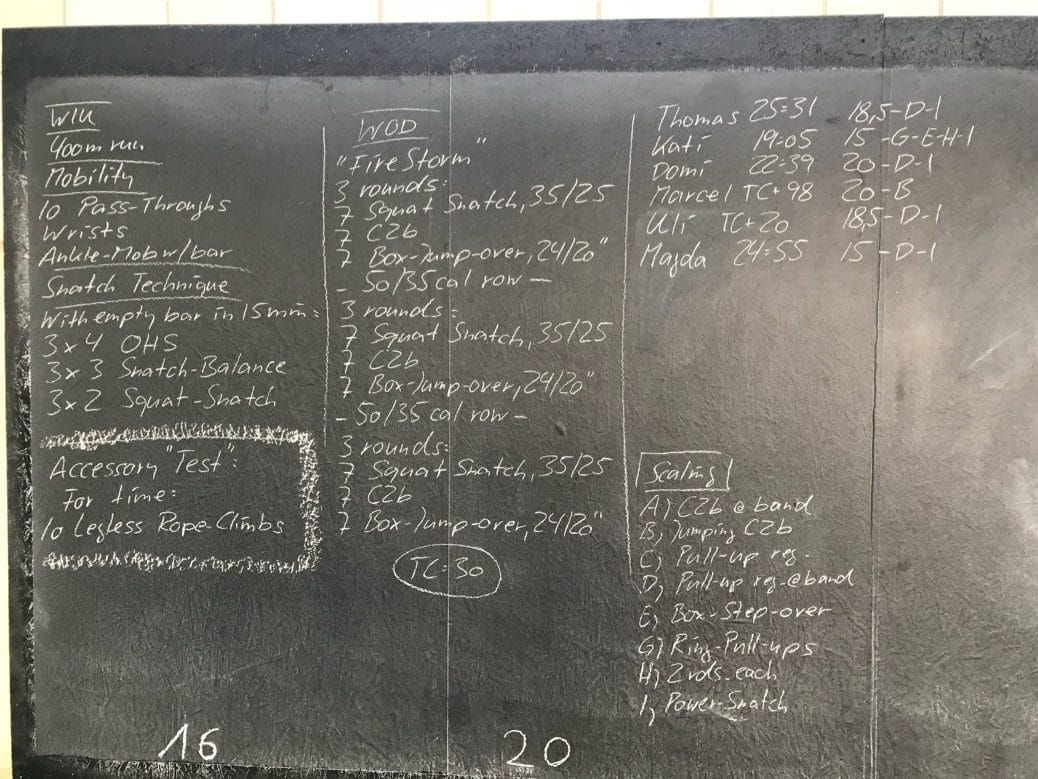 WU
400m run
Mobility
10 Pass-Throughs
Wrists
Ankle-Mob w/bar
Snatch Technique
With empty bar in 15min:
3x4 OHS
3x3 Snatch-Balance
3x2 Squat-Snatch
Accessory "Test":
For time:
10 Legless Rope-Climbs
16
WOD
"FireStorm"
3 rounds:
7 Squat Snatch, 35/25
7 C2b
7 Box-Jump-over, 24/20"
- 50/35 cal row -
3 rounds:
7 Squat Snatch, 35/25
7 C2b
7 Box-Jump-over, 24/20"
- 50/35 cal row -
3 rounds:
7 Squat Snatch, 35/25
7 C2b
7 Box-Jump-over, 24/20"
TC:30
20
Thomas 25:31 18,5-D-I
Kati 19:05 15-G-E-H-I
Domi 22:39 20-D-I
Marcel TC+98 20-B
Uli TC+20 18,5-D-I
Magda 24:55 15-D-I
Scaling
A) C2b @ band
B) Jumping C2b
C) Pull-up reg.
D) Pull-up reg. @band
E) Box-Step-over
G) Ring-Pull-ups
H) 2 rds. each
I) Power-Snatch